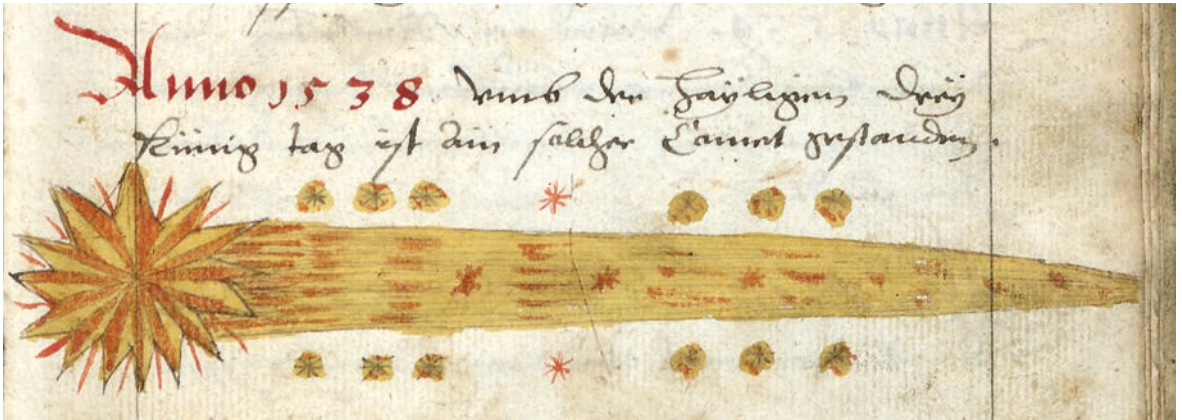 Anno 1538 vmb der hayligen drey
Künig tag ist ain solcher Comet gestanden.